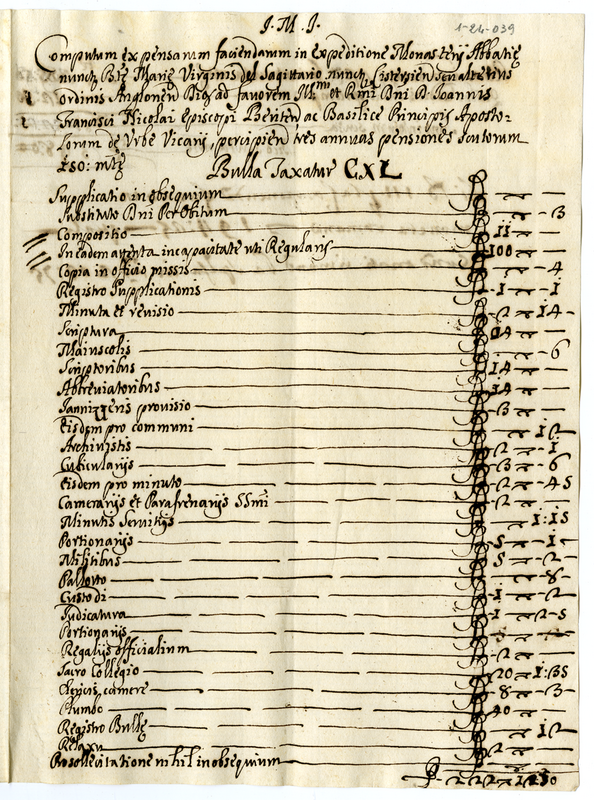 J. M. J.
1-24-039
Computum expensarum faciendarum in expeditione Monasterij Abbatię
nunctę Btę Marię Virginis del Sagittario nunctę Cistersien seu alterius
ordinis Anglonen Diọc ad favorem Illmi et Rmi Dni D. Joannis
Francisci Nicolai Episcopi ac Basilice Principis Aposto-
lorum de Urbe Vicarij, percipien tres annuas pensiones scutorum
150: mtę
Bulla Taxatur CXL
Supplicatio in obsequium
Substituto Dni Per Obitum 3
Compositio 11
In eadem incapacitate uti Regularis 100
Copia in officio missis 4
Registro Supplicationis 1 1
Minuta et revisio 2 14
Scriptura 14
Maiuscolis 6
Scriptoribus 14
Abbreviatoribus 14
Jannizzeris provisio 3
Eisdem pro communi 12
Archivistis 2 1
Cubicularijs 3 6
Eisdem pro minuto 2 45
Camerarijs et Parafrenarijs SSmi 2
Minutis Servitijs 1:15
Portionarijs 5 1
Militibus 5 2
Palloto 8
Custodi 1 2
Judicatura 1 2-5
Portionarijs
Regalijs officialium 2
Sacro Collegio 20 1:35
Clericis camere 8 3
Plumbo 40
Registro Bullę 12
2
Pro sollecitatione nihil in obsequium
222